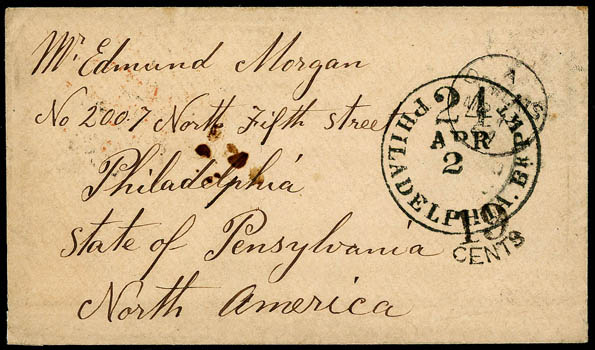 Mr Edmund Morgan
No 2007 North Fifth street
Philadelphia
State of Pensylvania
North America
PHILADELPHIA. BR. PKT
24
APR
2
19
CENTS